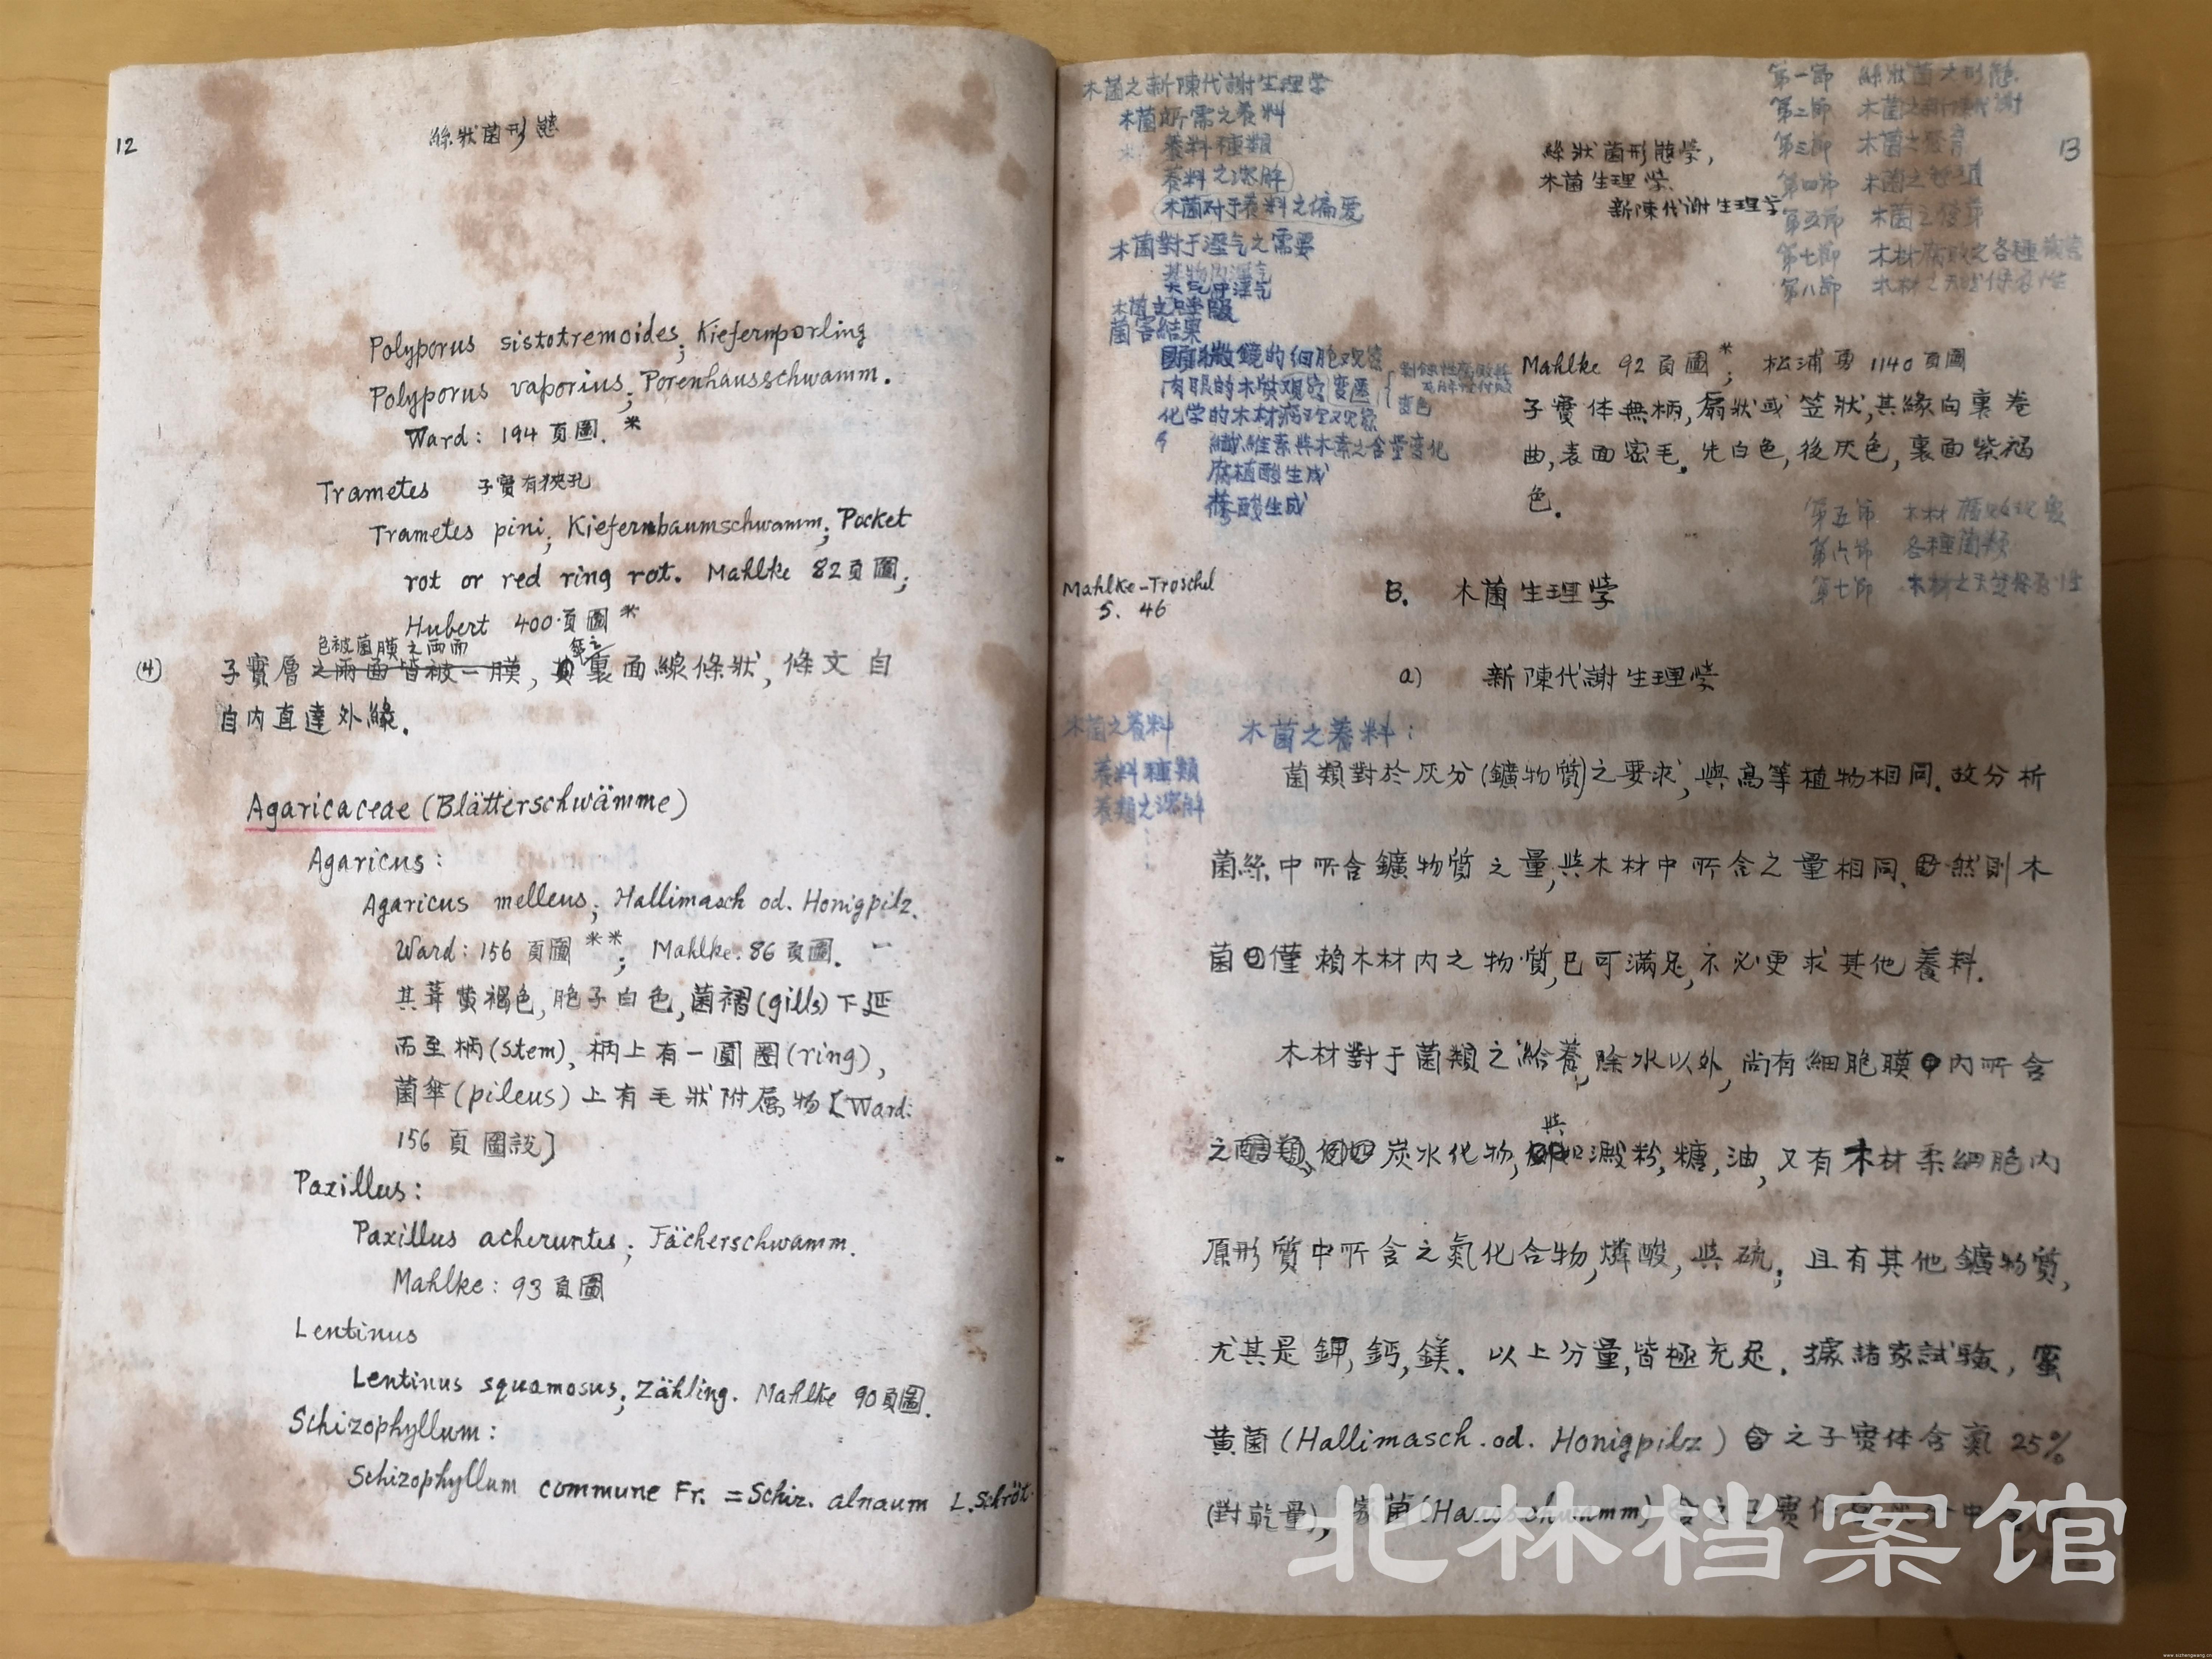 12
絲狀菌形態
Polyporus sistotremoides; Kiefernporling
Polyporus vaporius; Porenhausschwamm.
Ward: 194 頁圖. *
Trametes 子實有狹孔
Trametes pini; Kiefernbaumschwamm; Pocket
rot or red ring rot. Mahlke 82頁圖;
Hubert 400頁圖 *
色被菌膜之兩面
(4) 子實層之兩面皆被一膜, 其裏面線條狀, 條文自
自内直達外緣.
Agaricaceae (Blätterschwämme)
Agaricus:
Agaricus melleus; Hallimasch od. Honigpilz.
Ward: 156 頁圖 **; Mahlke: 86 頁圖.
其葺黄褐色, 胞子白色, 菌褶(gills)下延
而至柄(stem), 柄上有一圓圈(ring),
菌傘(pileus)上有毛狀附属物〔Ward:
156 頁圖説〕
Paxillus:
Paxillus acheruntes; Fächerschwamm.
Mahlke: 93頁圖
Lentinus
Lentinus squamosus; Zähling. Mahlke 90頁圖.
Schizophyllum:
Schizophyllum commune Fr. = Schiz. alnaum L. Schröt.
13
木菌之新陳代謝生理学
木菌所需之養料
養料種類
養料之溶解
木菌对于養料之偏爱
木菌對于溼气之需要
菌害結果
顕微鏡的细胞观察
肉眼的木質观察
化学的木材
纖維素與木素之含量变化
腐植酸生成
蓚酸生成
变色
第一節 絲狀菌之形態
第二節 木菌之新陳代謝
第三節 木菌之發育
第四節 木菌之
第五節 木菌之
第七節 木材腐败之各種
第八節 木材之天然保存性
絲狀菌形態学,
木菌生理学,
新陳代謝生理学
Mahlke 92 頁圖*; 松浦勇 1140 頁圖
子實体無柄, 扇狀或笠狀, 其緣向裏卷
曲, 表面密毛. 先白色, 後灰色, 裏面紫褐
色.
第五節 木材腐
第六節 各種菌類
第七節 木材之天然保存性
Mahlke-Troschel
S. 46
B. 木菌生理学
a) 新陳代謝生理学
木菌之養料
養料種類
養類之溶解
木菌之養料:
菌類對於灰分(鑛物質)之要求, 與高等植物相同. 故分析
菌絲中所含鑛物質之量, 與木材中所含之量相同. 然則木
菌僅賴木材内之物質, 已可滿足, 不必更求其他養料.
木材對于菌類之給養, 除水以外, 尚有細胞膜内所含
之 炭水化物, 與澱粉, 糖, 油, 又有木材柔細胞内
原形質中所含之氮化合物, 燐酸, 與硫; 且有其他鑛物質,
尤其是鉀, 鈣, 鎂. 以上分量, 皆極充足. 據諸家試驗, 蜜
黄菌(Hallimasch od. Honigpilz)之子實体含氮 25%
(對乾量), 家菌(Hausschwamm)
北林档案馆